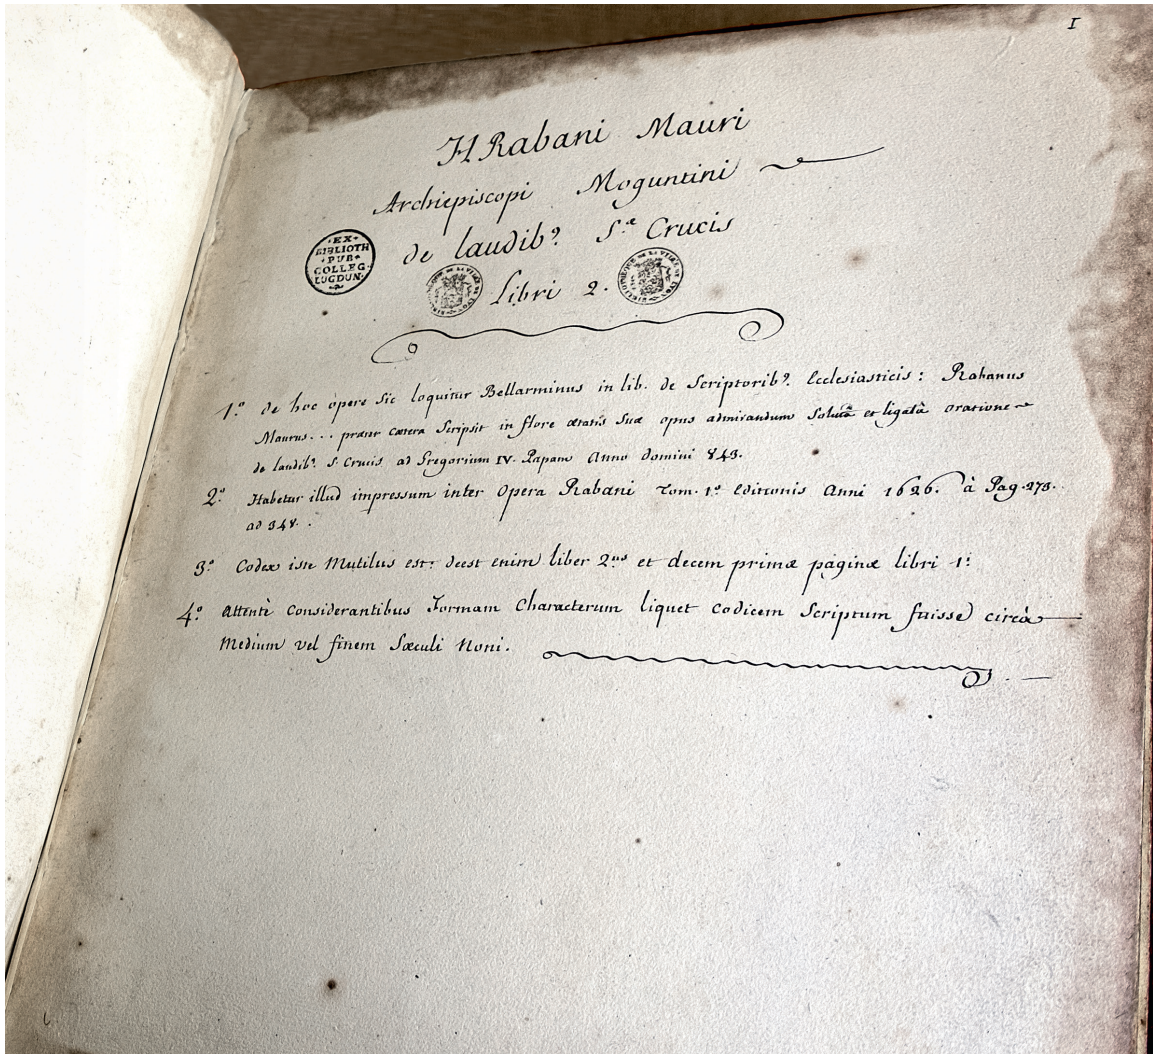 I
HRabani Mauri
Archiepiscopi Moguntini
de laudibꝰ. Sᵃᵉ Crucis
Libri 2.
·EX·
BIBLIOTH
·PUB·
COLLEG.
LUGDUN.
BIBLIOTHEQUE DE LA VILLE DE LYON
BIBLIOTHEQUE DE LA VILLE DE LYON
1.º de hoc opere sic loquitur Bellarminus in lib. de Scriptoribꝰ. Ecclesiasticis : Rabanus
Maurus... præter cætera Scripsit in flore ætatis Suæ opus admirandum Solutâ et ligatâ oratione
de laudibꝰ. S. Crucis ad Gregorium IV. Papam Anno domini 843.
2.º Habetur illud impressum inter Opera Rabani Tom. 1.º Editionis Anni 1626. à Pag. 273.
ad 348.
3.º Codex iste Mutilus est: deest enim liber 2.ᵘˢ et decem primæ paginæ libri 1.ⁱ
4.º Attentè Considerantibus Formam Characterum liquet Codicem Scriptum fuisse circà
Medium vel finem Sæculi Noni.